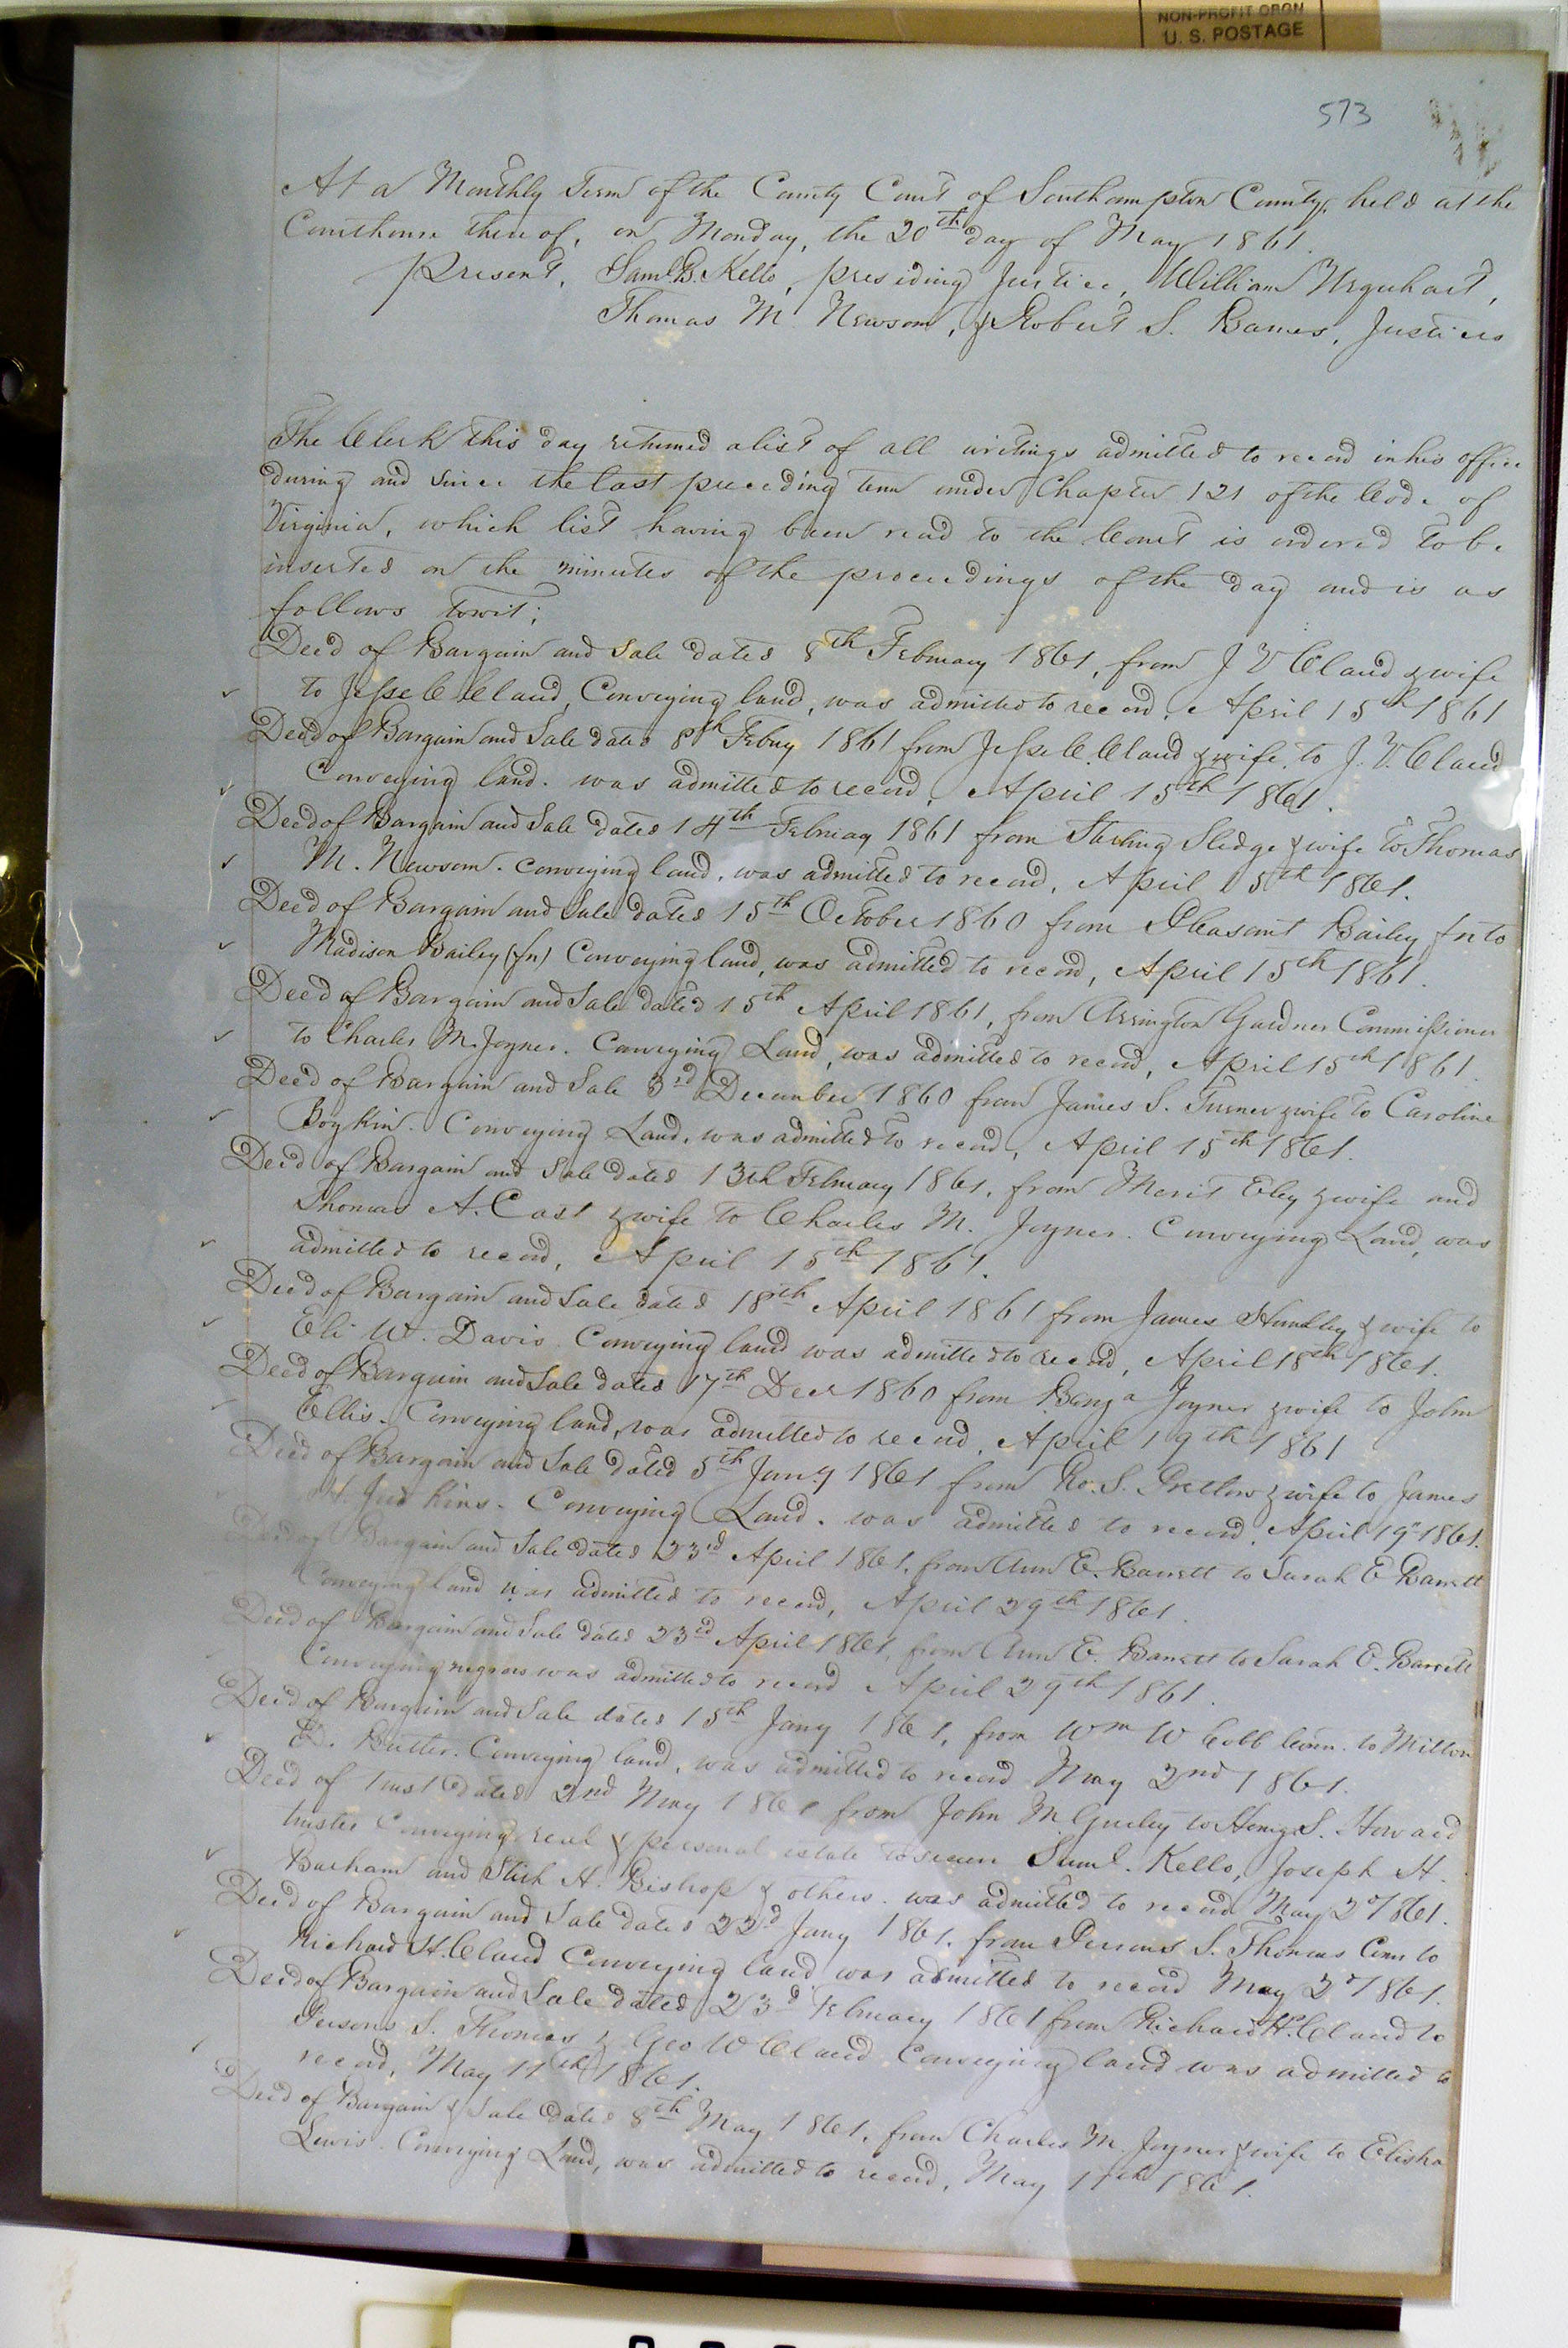 NON-PROFIT ORGN
U. S. POSTAGE
573
At a Monthly Term of the County Court of Southampton County, held at the
Courthouse there of, on Monday, the 20th day of May 1861.
Present, Saml. B. Kello, presiding Justice, William Urquhart,
Thomas M. Newsom, & Robert S. Barnes, Justices
The Clerk this day returned a list of all writings admitted to record in his office
during and since the last preceding term under Chapter 121 of the Code of
Virginia, which list having been read to the Court is ordered to be
inserted on the minutes of the proceedings of the day and is as
follows towit;
Deed of Bargain and Sale dated 8th February 1861, from J V Claud & wife
to Jesse C Claud, Conveying land, was admitted to record, April 15th 1861
Deed of Bargain and Sale dated 8th Feby 1861 from Jesse C. Claud & wife to J. V. Claud
Conveying land. was admitted to record, April 15th 1861.
Deed of Bargain and Sale dated 14th February 1861 from Sterling Sledge & wife to Thomas
M. Newsom. conveying land, was admitted to record, April 15th 1861.
Deed of Bargain and Sale dated 15th October 1860 from Pleasant Bailey fn to
Madison Bailey (fn) Conveying land, was admitted to record, April 15th 1861.
Deed of Bargain and Sale dated 15th April 1861, from Arrington Gardner Commissioner
to Charles M. Joyner. Conveying Land, was admitted to record, April 15th 1861.
Deed of Bargain and Sale 3rd December 1860 from James S. Turner & wife to Caroline
Boykin. Conveying Land, was admitted to record, April 15th 1861.
Deed of Bargain and Sale dated 13th February 1861, from Merit Eley & wife and
Thomas A. East & wife to Charles M. Joyner. Conveying Land, was
admitted to record, April 15th 1861.
Deed of Bargain and Sale dated 18th April 1861 from James Hundley & wife to
Eli W. Davis. Conveying land was admitted to record, April 18th 1861.
Deed of Bargain and Sale dated 17th Decr 1860 from Benja Joyner & wife to John
Ellis. Conveying land, was admitted to record, April 19th 1861
Deed of Bargain and Sale dated 5th Jany 1861 from Ro. S. Pretlow & wife to James
H. Judkins. Conveying Land. was admitted to record, April 19" 1861.
Deed of Bargain and Sale dated 23rd April 1861, from Ann E. Barrett to Sarah E Barrett
Conveying land was admitted to record, April 29th 1861.
Deed of Bargain and Sale dated 23rd April 1861, from Ann E. Barrett to Sarah E. Barrett
Conveying negroes was admitted to record April 29th 1861.
Deed of Bargain and Sale dated 15th Jany 1861, from Wm W Cobb Comr. to Milton
D. Butler. Conveying land, was admitted to record May 2nd 1861.
Deed of trust dated 2nd May 1861 from John M Gurley to Henry S. Howard
trustee Conveying real & personal estate to secure Saml. Kello, Joseph H.
Barham and Stith H. Bishop & others. was admitted to record May 2d 1861.
Deed of Bargain and Sale dated 22d Jany 1861, from Persons S. Thomas Comr to
Richard H. Claud Conveying land was admitted to record May 2d 1861.
Deed of Bargain and Sale dated 23d February 1861 from Richard H. Claud to
Persons S. Thomas & Geo W Claud Conveying land was admitted to
record, May 11th 1861.
Deed of Bargain & Sale dated 8th May 1861, from Charles M. Joyner & wife to Elisha
Lewis. Conveying Land, was admitted to record, May 11th 1861.